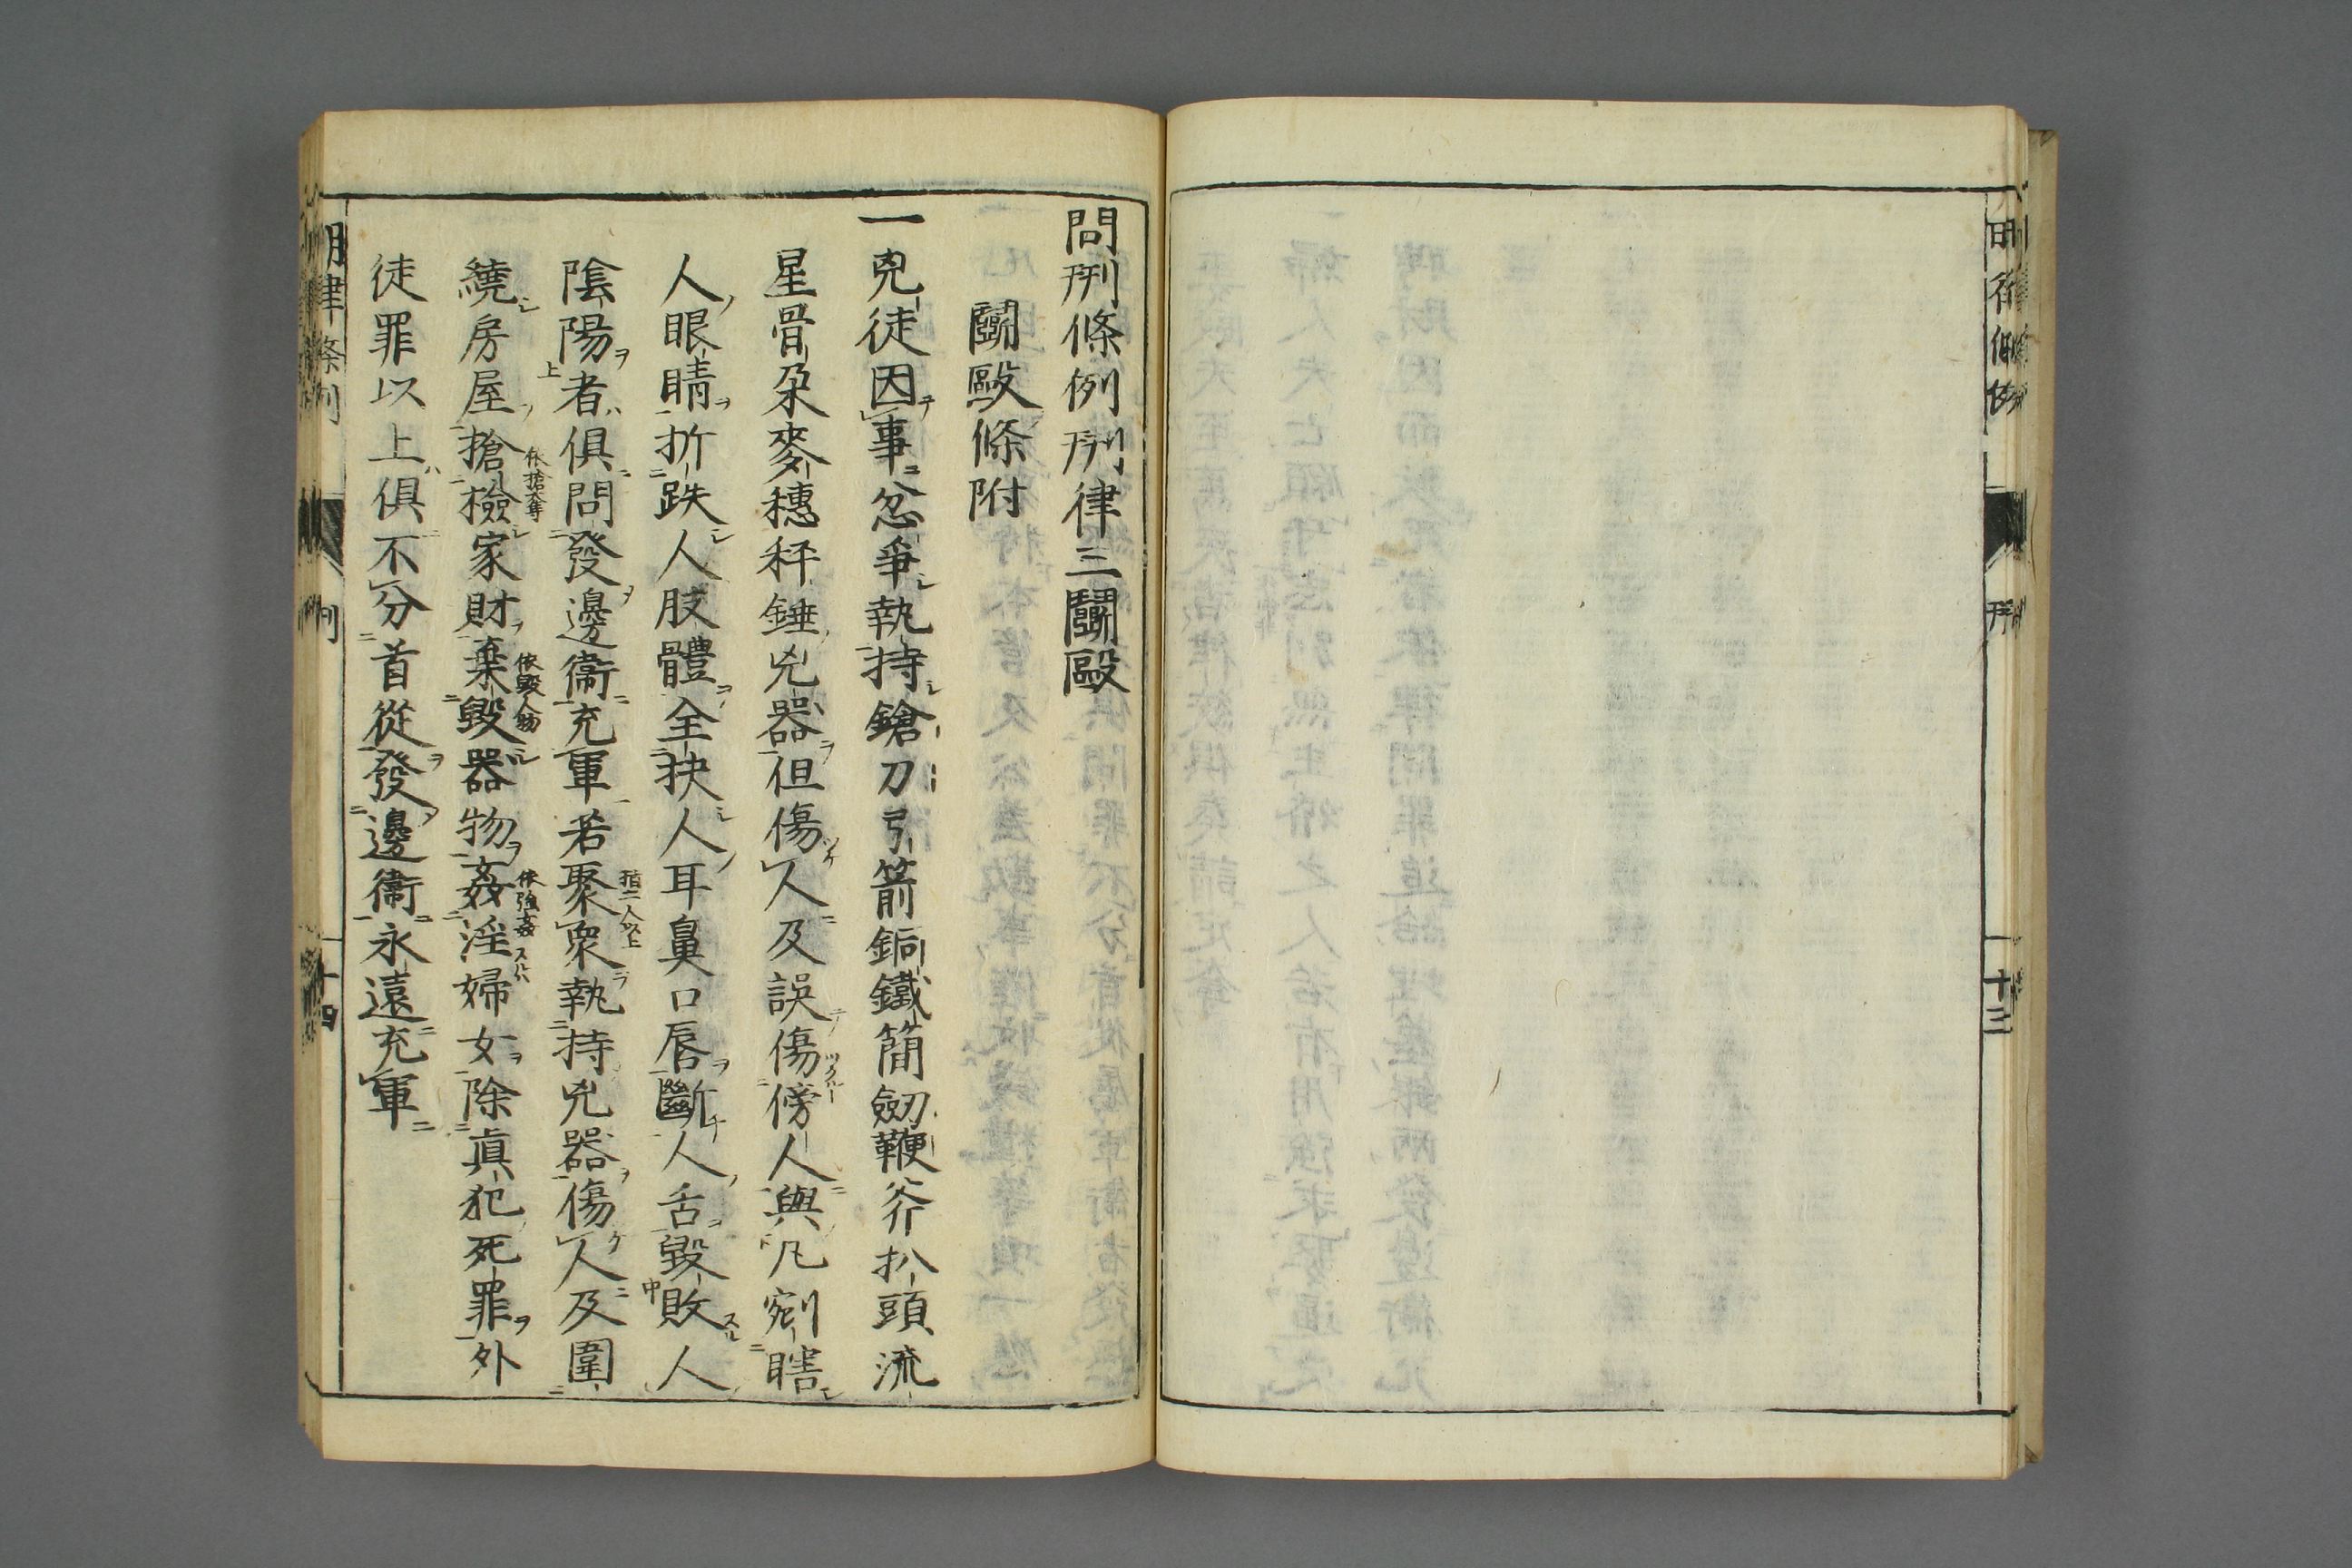 問刑條例刑律三鬭毆
鬭毆條附
一兇徒因事忿爭執持鎗刀弓箭銅鐵簡劒鞭斧扒頭流
星骨朶麥穗秤錘兇器但傷人及誤傷傍人與凡剜瞎
人眼睛折跌人肢體全抉人耳鼻口唇斷人舌毀敗人
陰陽者俱問發邊衞充軍若聚衆執持兇器傷人及圍
指二人以上
繞房屋搶檢家財棄毀器物姦淫婦女除眞犯死罪外
依搶奪
依毀人物
依強姦
徒罪以上俱不分首從發邊衞永遠充軍
明律條例
刑
十四
明律條例
刑
十三